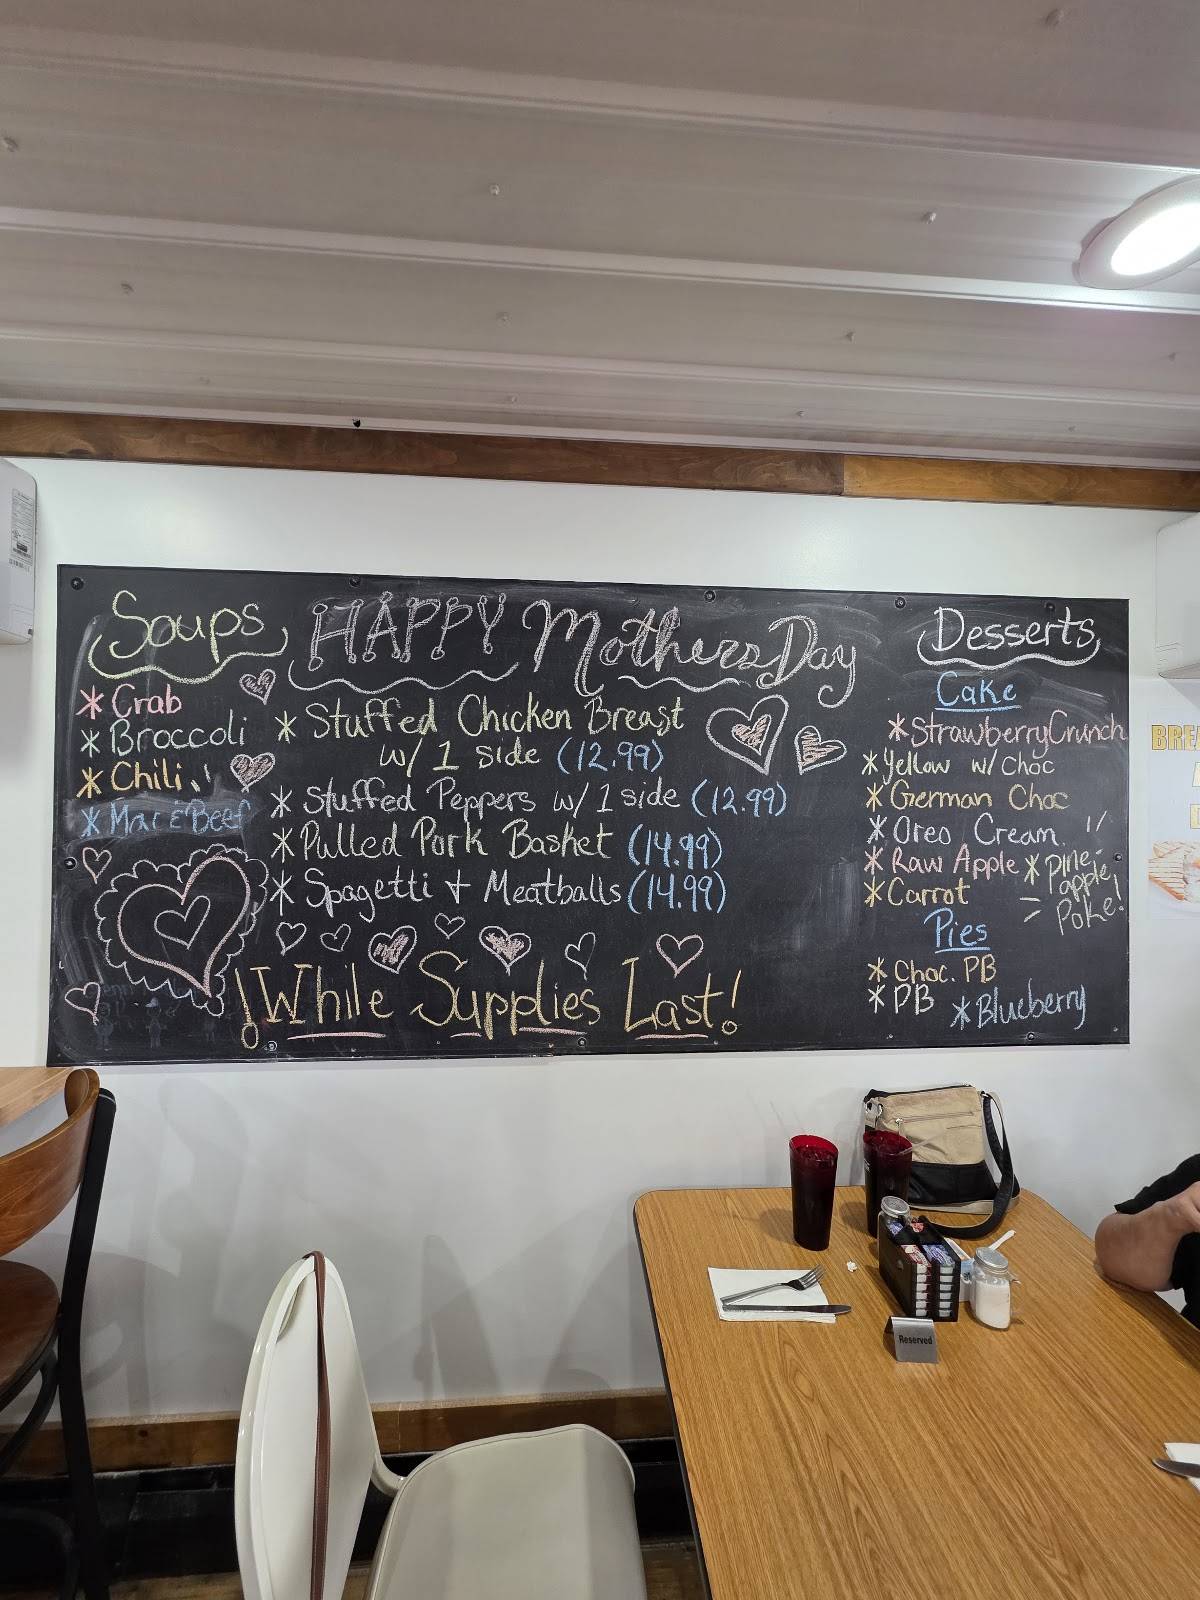 Soups
* Crab
* Broccoli
* Chili
* Mac & Beef
HAPPY Mothers Day
* Stuffed Chicken Breast
w/ 1 side (12.99)
* Stuffed Peppers w/ 1 side (12.99)
* Pulled Pork Basket (14.99)
* Spagetti + Meatballs (14.99)
! While Supplies Last!
Desserts
Cake
* Strawberry Crunch
* Yellow w/ Choc
* German Choc
* Oreo Cream
* Raw Apple
* Carrot
* Pine-
apple
Poke!
Pies
* Choc. PB
* PB
* Blueberry
BRE
Reserved